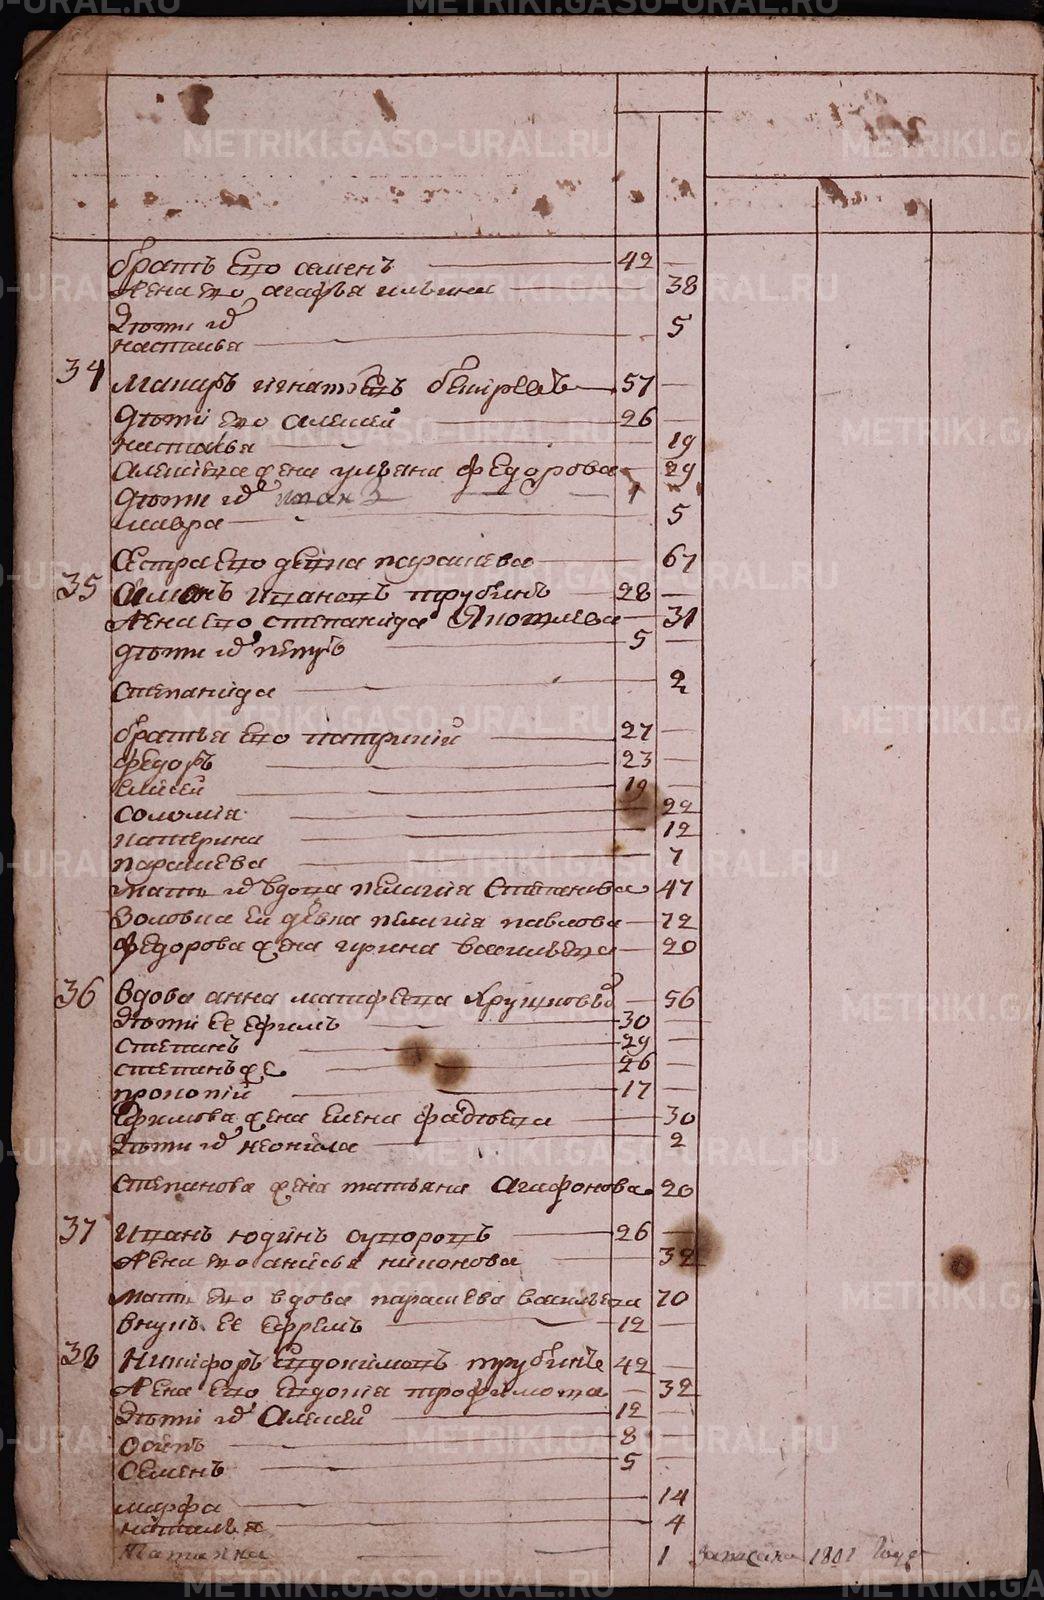 братъ ево семенъ 42
жена ево агафья ильина 38
дѣти их
наталья 5
34 Макаръ игнатьевъ 57
дѣти ево алексей 26
наталья 19
алексѣева жена ульяна федорова 29
дѣти их иван 1
мавра 5
сестра ево девка парасковья 67
35 Симонъ ивановъ трубинъ 28
жена ево степанида яковлева 31
дѣти их петръ 5
степанида 2
братья ево патрикий 27
федоръ 23
елисей 19
соломия 22
катерина 12
парасковья 7
мать их вдова пелагия степанова 47
золовка ей девка пелагия павлова 72
федорова жена ирина васильева 20
36 вдова анна матфеева хрущковых 56
дѣти ее ефимъ 30
степанъ 29
степанъ же 26
прокопий 17
ефимова жена елена фадѣева 30
дѣти их неонила 2
степанова жена татьяна агафонова 20
37 иванъ юдинъ суворовъ 26
жена ево анисья никонова 32
мать ево вдова парасковья васильева 70
внукъ ее ефремъ 12
38 Никифоръ евдокимовъ трубинъ 42
жена ево евдокия трофимова 32
дѣти их алексей 12
осипъ 8
семенъ 5
марфа 14
наталья 4
Татияна 1 записана 1801 году
METRIKI.GASO-URAL.RU